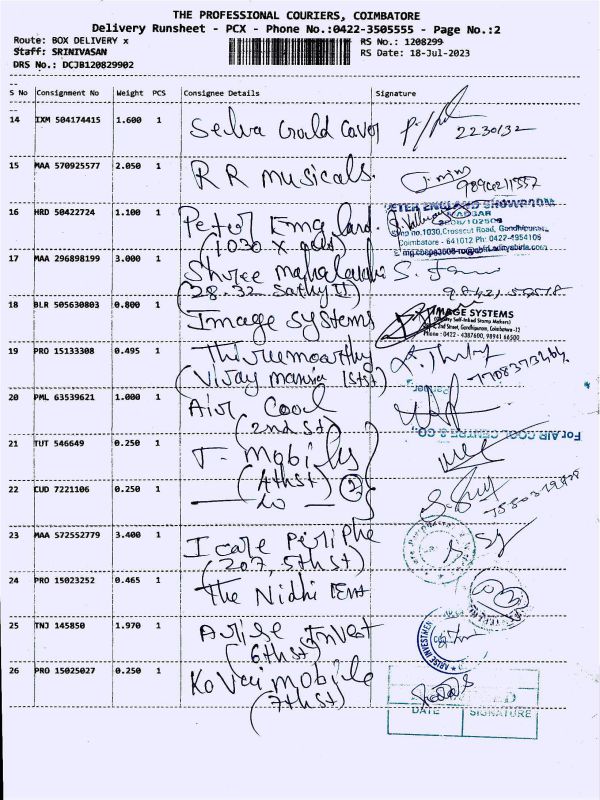 THE PROFESSIONAL COURIERS, COIMBATORE
Delivery Runsheet - PCX - Phone No.:0422-3505555 - Page No.:2
Route: BOX DELIVERY x RS No.: 1208299
Staff: SRINIVASAN RS Date: 18-Jul-2023
DRS No.: DCJB120829902
S No Consignment No Weight PCS Consignee Details Signature
14 IXM 504174415 1.600 1 Selva Gold Cover
2230132
15 MAA 570925577 2.050 1 RR musicals.
16 HRD 50422724 1.100 1 Peter England
(1030 X
PETER ENGLAND SHOWROOM
Shop no.1030, Crosscut Road, Gandhipuram,
Coimbatore - 641012 Ph: 0422-4954106
17 MAA 296898199 3.000 1 Shree mahalakshmi
(28-32 Sathy
18 BLR 505630803 0.800 1 Image Systems
IMAGE SYSTEMS
(Self-Inked Stamp Makers)
2nd Street, Gandhipuram, Coimbatore-12
Phone : 0422 - 4387600, 98941 66500
19 PRO 15133308 0.495 1 Thirumoorthy
(Vijay mansion 1st st)
7708373464
Partner
20 PML 63539621 1.000 1 Air Cool
(2nd St)
For AIR COOL CENTRE & CO.,
21 TUT 546649 0.250 1 T-mobiles
(4th St) 2
22 CUD 7221106 0.250 1
23 MAA 572552779 3.400 1 I care Periphe
(207, 5th St)
24 PRO 15023252 0.465 1 The Nidhi Ent
25 TNJ 145850 1.970 1 Arise Invest
(6th st)
ARISE INVESTMENT
26 PRO 15025027 0.250 1 Kovai mobile
(7th st)
DATE SIGNATURE